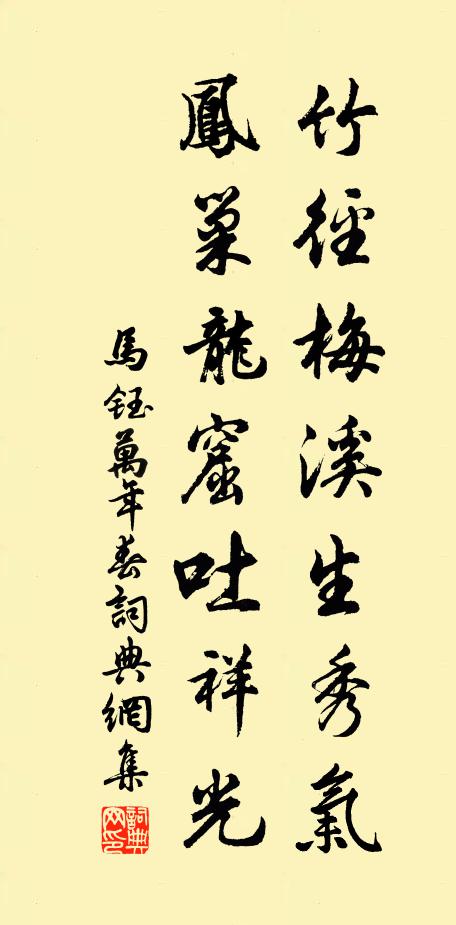 竹徑梅溪生秀氣
鳳巢龍窟吐祥光
馬鈺萬年春詞典網集
詞典網印